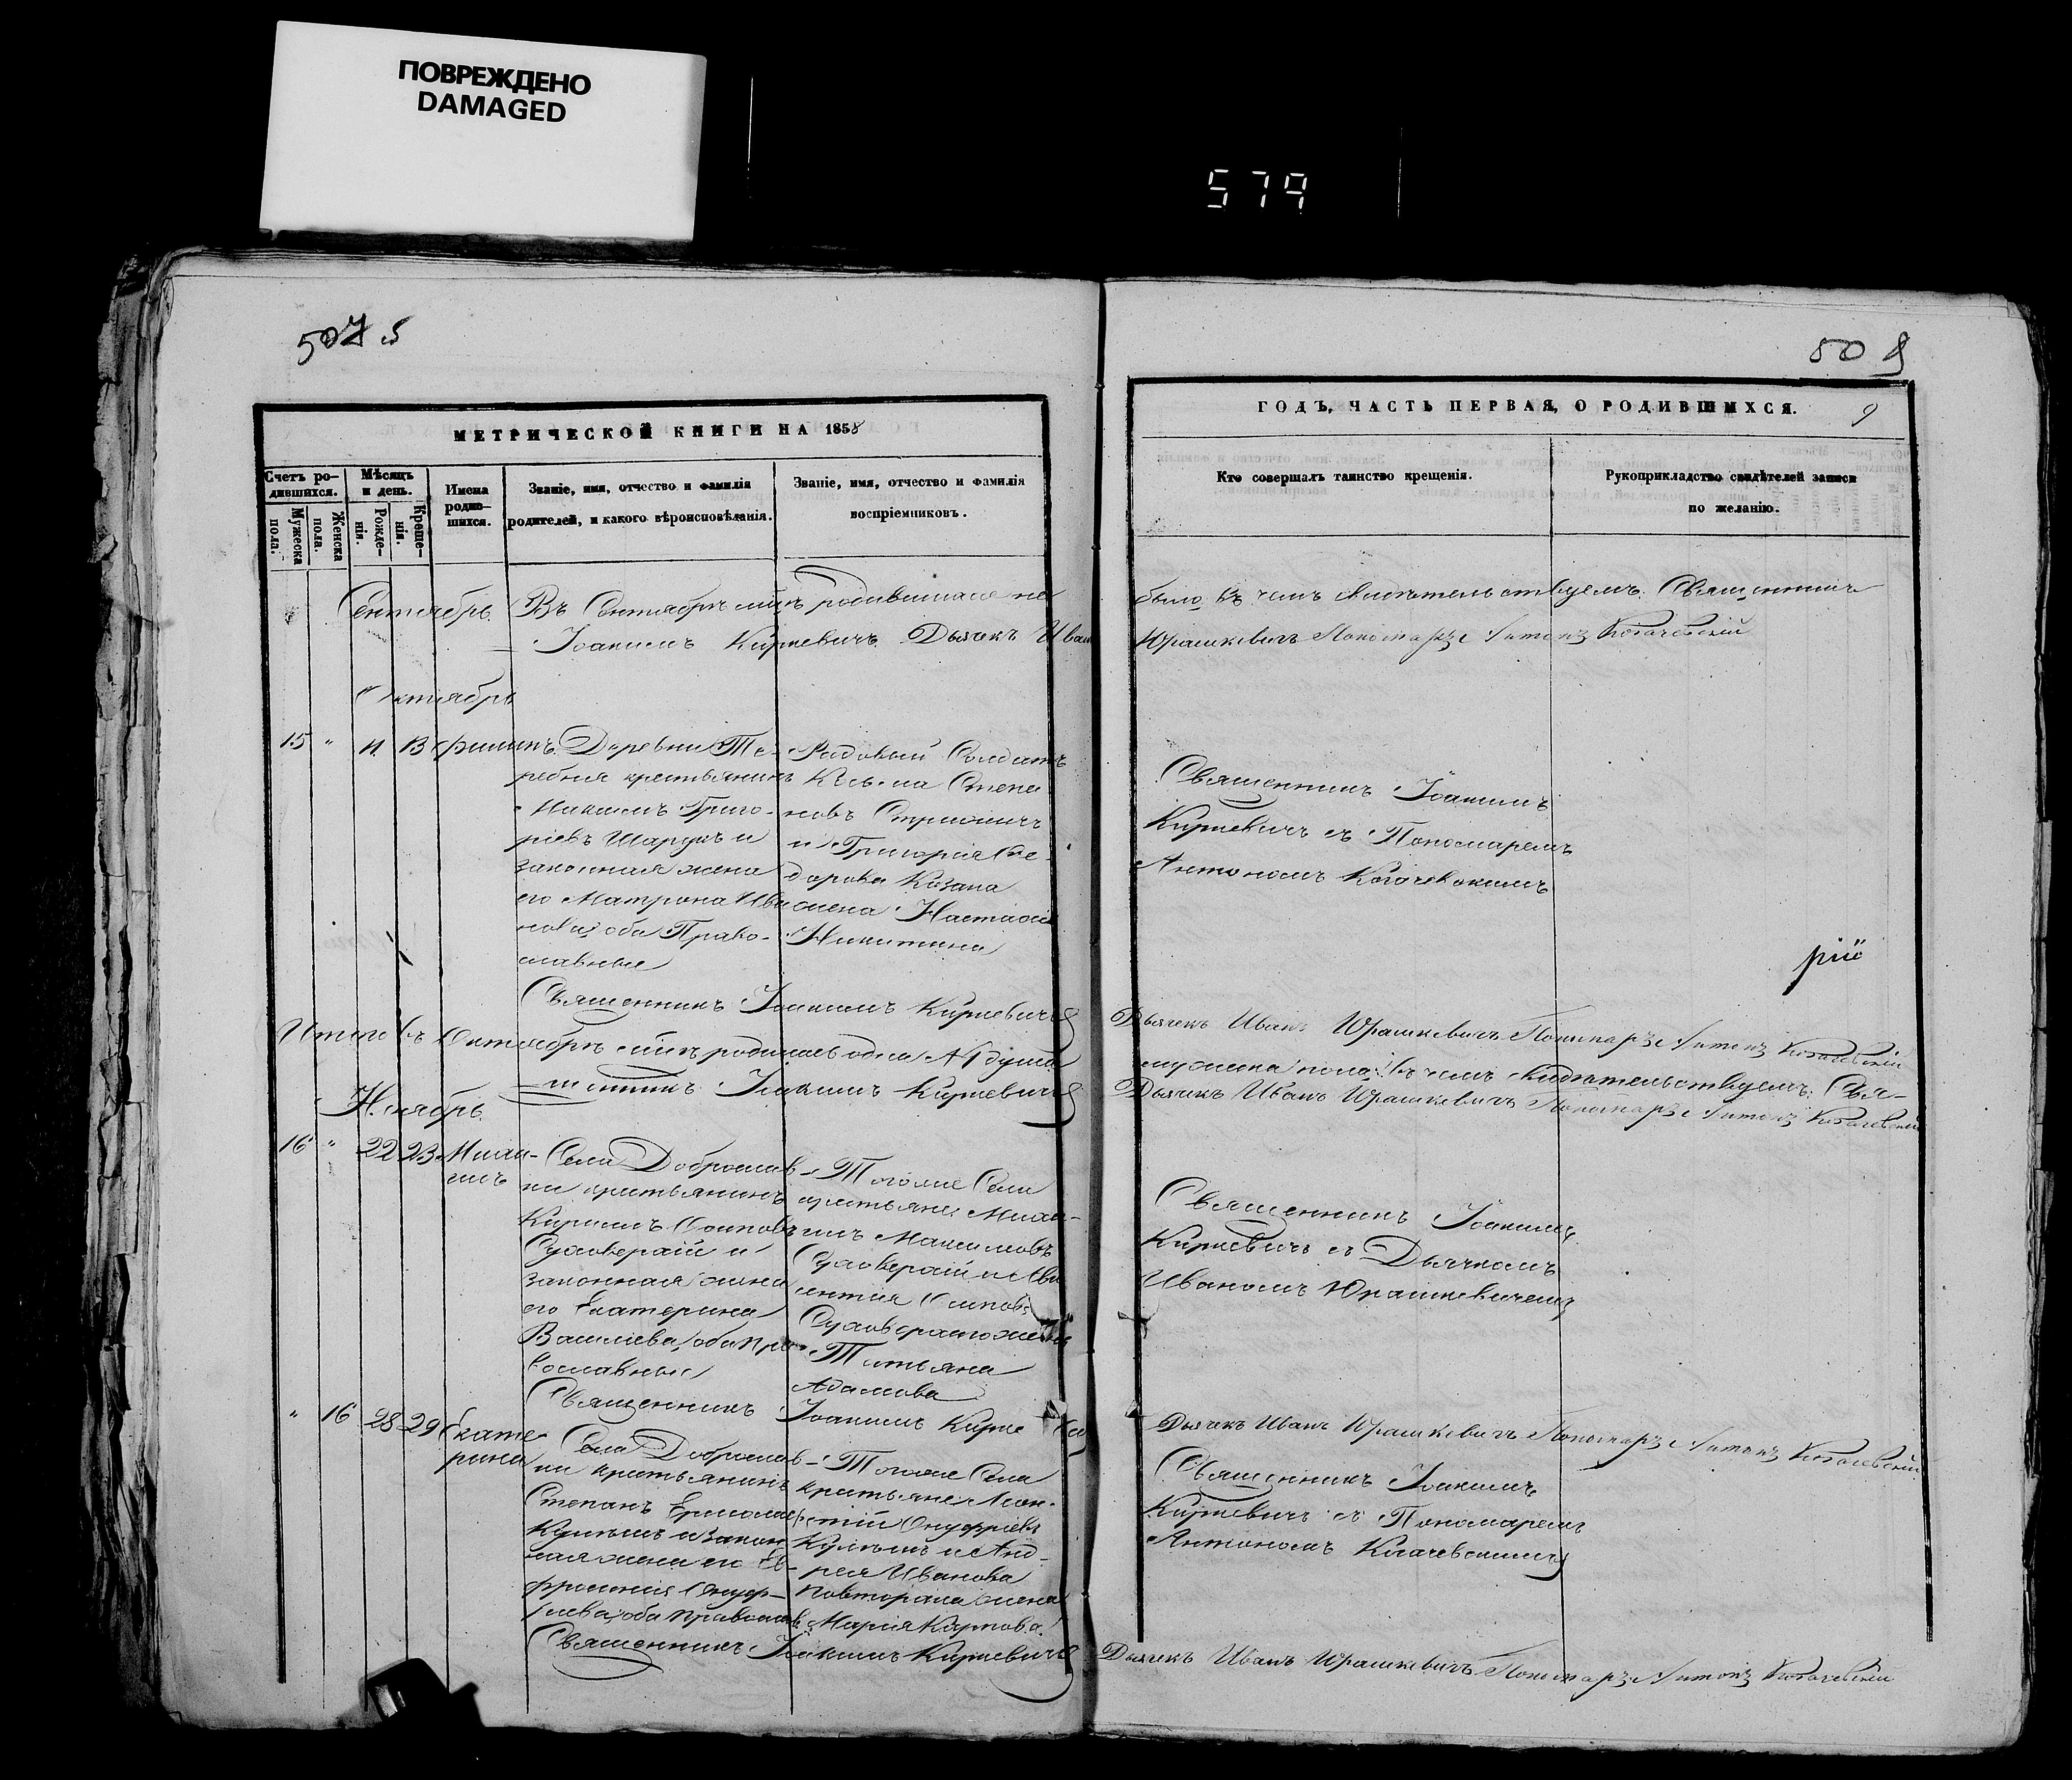 ПОВРЕЖДЕНО
DAMAGED
579
507 5
50 9
МЕТРИЧЕСКОЙ КНИГИ НА 1858
ГОДЪ, ЧАСТЬ ПЕРВАЯ, О РОДИВШИХСЯ.
9
Счетъ ро-
дившихся.
Мужеска
пола.
Женска
пола.
Мѣсяцъ
и день.
Рожде-
нія.
Креще-
нія.
Имена
родив-
шихся.
Званіе, имя, отчество и фамилія
родителей, и какого вѣроисповѣданія.
Званіе, имя, отчество и фамилія
воспріемниковъ.
Кто совершалъ таинство крещенія.
Рукоприкладство свидѣтелей записи
по желанію.
Сентябрь.
Въ Сентябрѣ м̃цѣ родившихся не
было, въ чемъ свидѣтельствуемъ: Священникъ
Іоакимъ Киркевичъ. Дьячекъ Иван
Юрашкевичъ Пономарь Антонъ
Октябрь
15 " 11 13 Филипъ.
Деревни Те-
ребня крестьянинъ
Никимъ Григо-
ріевъ и
законная жена
его Матрона Ива
нова, оба Право-
славные
Рядовый Солдатъ
Козьма Степа
новъ
и Григорія Ѳе-
дорова Козана
жена Настасія
Никитина
Священникъ Іоакимъ
Киркевичъ съ Пономаремъ
Антономъ
рій
Священникъ Іоакимъ Киркевичъ
Дьячекъ Иванъ Юрашкевичъ Пономарь Антонъ
Итого въ Октябрѣ м̃цѣ родилась одна 1 душа
мужеска пола; въ чемъ свидѣтельствуемъ: Свя-
щенникъ Іоакимъ Киркевичъ
Дьячекъ Иванъ Юрашкевичъ Пономарь Антонъ
Ноябрь.
16 " 22 23 Миха-
илъ
Села Доброслав-
ки крестьянинъ
Кириллъ Осиповъ
и
законная жена
его Екатерина
Василіева, оба пра-
вославные
Тогоже Села
крестьяне Миха-
илъ Максимовъ
и
Осипова
жена
Татьяна
Адамова
Священникъ Іоакимъ
Киркевичъ съ Дьячкомъ
Иваномъ Юрашкевичемъ
Священникъ Іоакимъ Кирке
Дьячекъ Иванъ Юрашкевичъ Пономарь Антонъ
" 16 28 29 Екате-
рина
Села Доброслав-
ки крестьянинъ
Степанъ
и закон
ная жена его Ев-
фросинія Онуф-
ріева, оба православ.
Тогоже Села
крестьяне Леон-
тій Онуфріевъ
и Анд-
рея Иванова
жена
Марія Карпова.
Священникъ Іоакимъ
Киркевичъ съ Пономаремъ
Антономъ
Священникъ Іоакимъ Киркевичъ
Дьячекъ Иванъ Юрашкевичъ Пономарь Антонъ